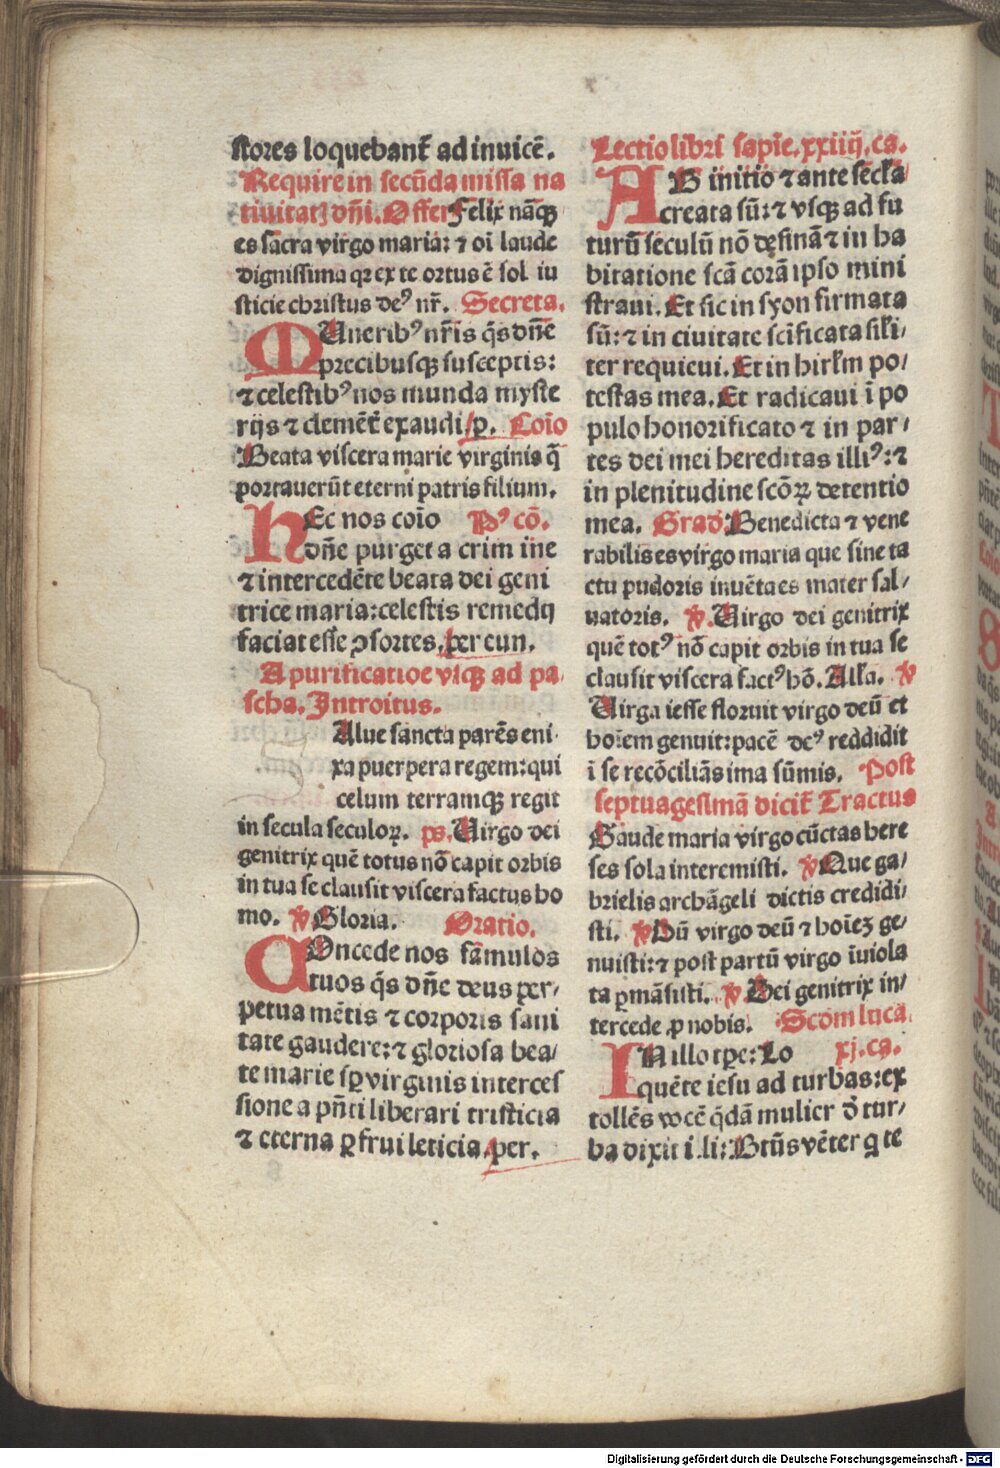 stores loquebant̃ ad inuicẽ.
Require in secũda missa na
tiuitatꝫ dñi. Offer Felix nãqꝫ
es sacra virgo maria: ⁊ oĩ laude
dignissima qꝛ ex te ortus ẽ sol iu
sticie christus deꝰ nr̃. Secreta.
MUneribꝰ nr̃is q̃s dñe
precibusqꝫ susceptis:
⁊ celestibꝰ nos munda myste
rijs ⁊ clemẽt̃ exaudi. p. Coĩo
Beata viscera marie virginis q̃
portauerũt eterni patris filium.
HEc nos coĩo Pꝰ cõ.
dñe purget a crim ine
⁊ intercedẽte beata dei geni
trice maria: celestis remedij
faciat esse ꝯsortes. per eun.
A purificatiõe vsqꝫ ad pa
scha. Introitus.
Alue sancta parẽs eni
xa puerpera regem: qui
celum terramqꝫ regit
in secula seculoꝝ. ps. Uirgo dei
genitrix quẽ totus nõ capit orbis
in tua se clausit viscera factus ho
mo. ℣ Gloria. Oratio.
COncede nos famulos
tuos q̃s dñe deus per/
petua mẽtis ⁊ corporis sani
tate gaudere: ⁊ gloriosa bea/
te marie sꝑ virginis interces
sione a pñti liberari tristicia
⁊ eterna ꝑfrui leticia. per.
Lectio libri sapie. xxiiij. ca.
AB initio ⁊ ante secĩa
creata sũ: ⁊ vsqꝫ ad fu
turũ seculũ nõ desinã ⁊ in ha
bitatione scã corã ipso mini
straui. Et sic in syon firmata
sũ: ⁊ in ciuitate scĩficata sil̃i/
ter requieui. Et in hirl̃m po/
testas mea. Et radicaui ĩ po
pulo honorificato ⁊ in par/
tes dei mei hereditas illiꝰ: ⁊
in plenitudine scõꝝ detentio
mea. Grad̃. Benedicta ⁊ vene
rabilis es virgo maria que sine ta
ctu pudoris inuẽta es mater sal/
uatoris. ℣. Uirgo dei genitrix
quẽ totꝰ nõ capit orbis in tua se
clausit viscera factꝰ hõ. All̃a. ℣
Uirga iesse floruit virgo deũ et
hoĩem genuit: pacẽ deꝰ reddidit
i se recõciliãs ima sũmis. Post
septuagesimã dicit̃ Tractus
Gaude maria virgo cũctas here
ses sola interemisti. ℣ Que ga/
brielis archãgeli dictis credidi/
sti. ℣ Dũ virgo deũ ⁊ hoĩeꝫ ge/
nuisti: ⁊ post partũ virgo ĩuiola
ta ꝑmãsisti. ℣ Dei genitrix in/
tercede ꝓ nobis. Scdm lucã.
IN illo tꝑe: Lo xj. ca.
quẽte iesu ad turbas: ex
tollẽs vocẽ q̃dã mulier d̃ tur/
ba dixit i li: Btũs vẽter q te
Digitalisierung gefördert durch die Deutsche Forschungsgemeinschaft - DFG